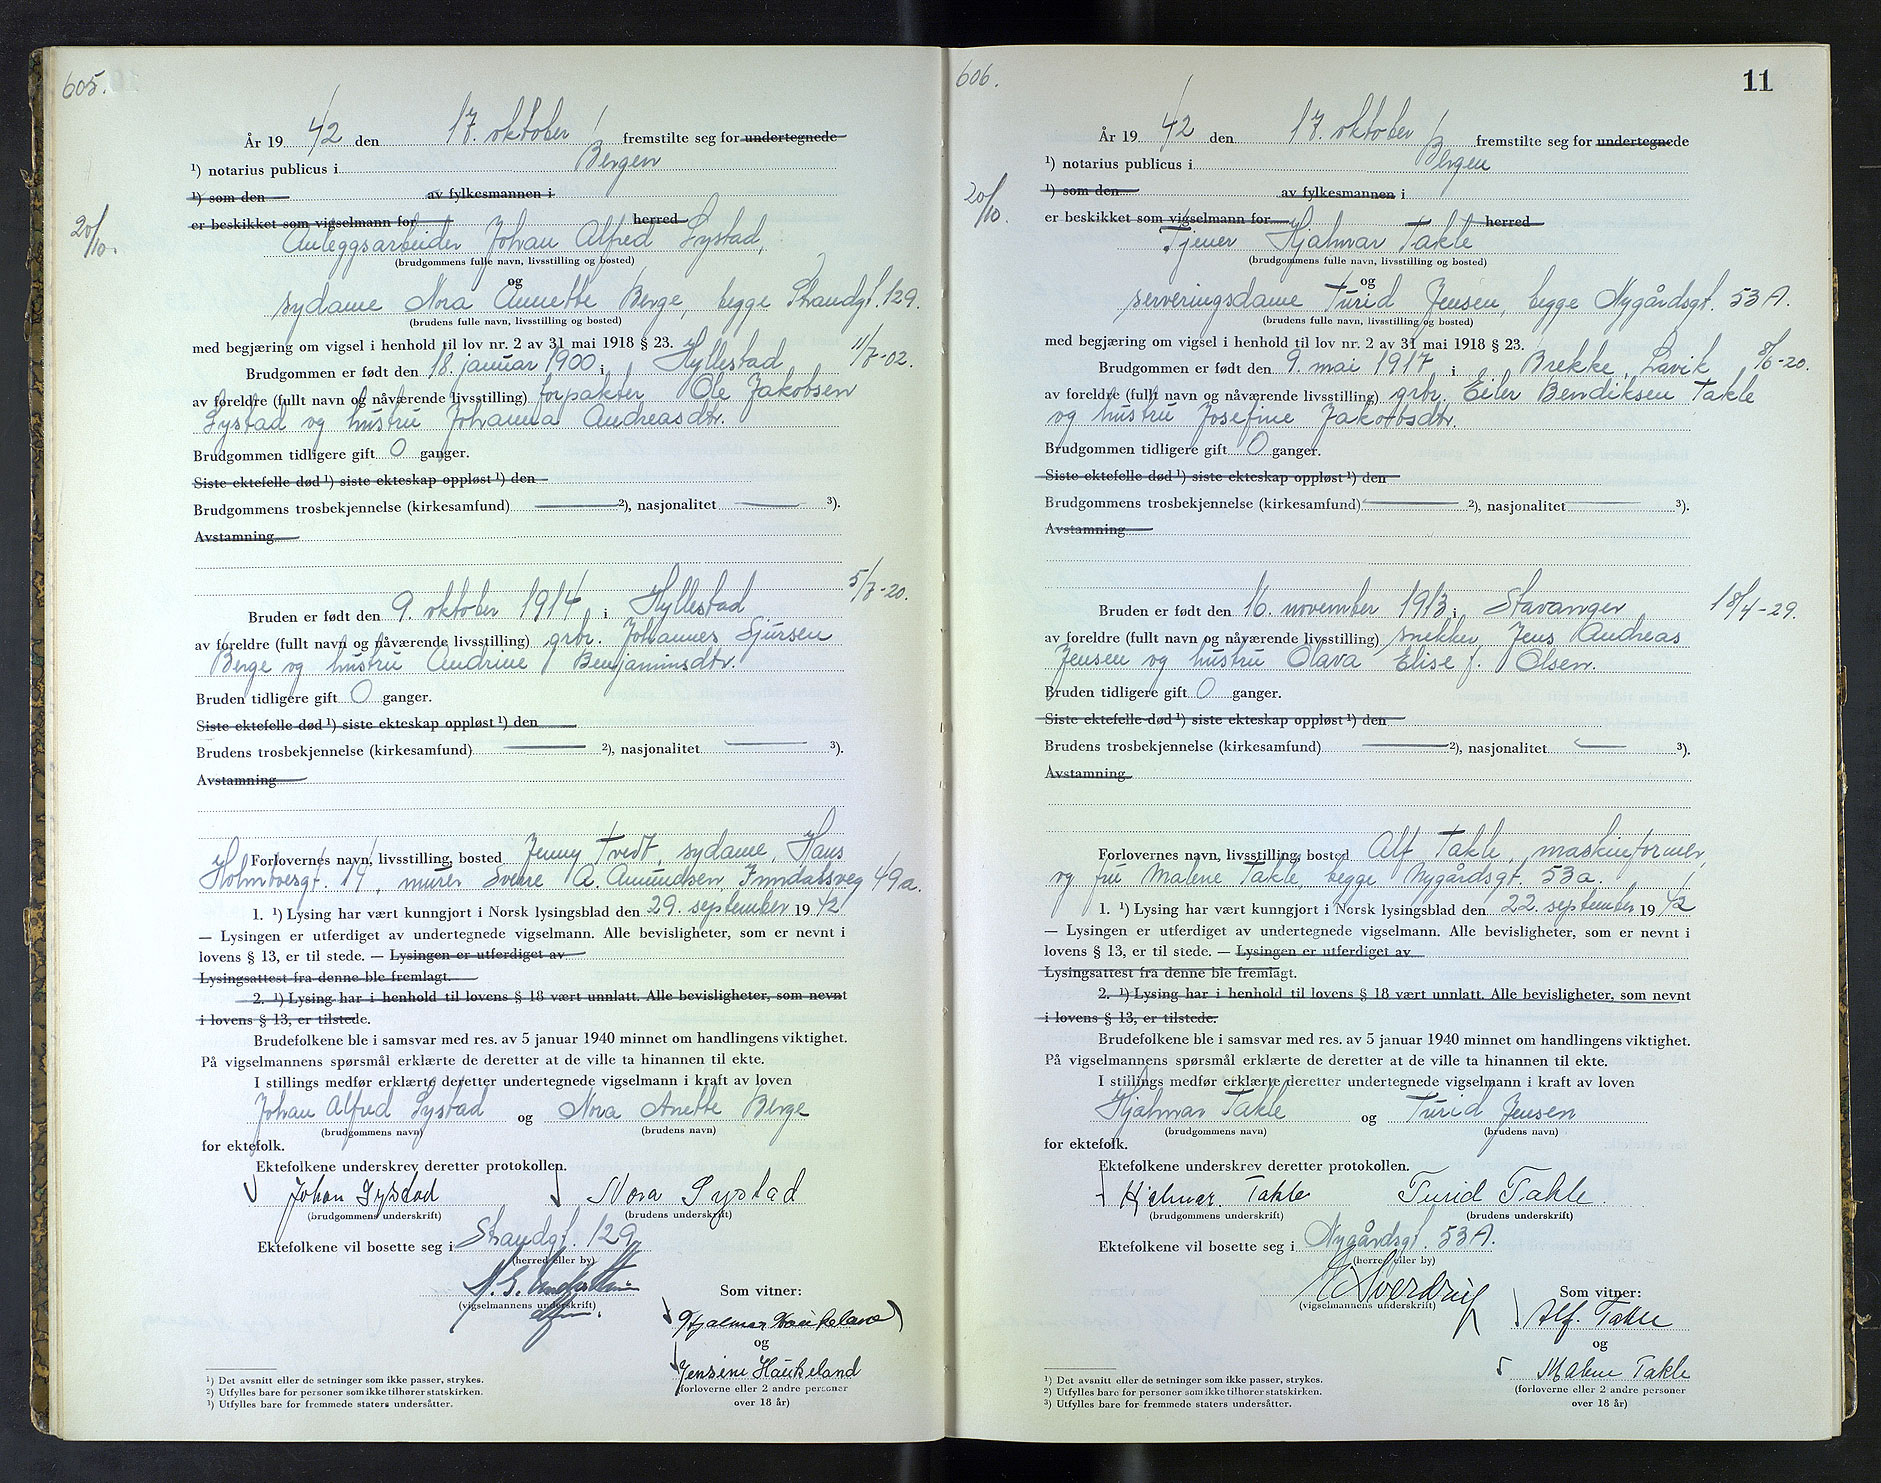 605.
År 19 42 den 17. oktober fremstilte seg for undertegnede
¹) notarius publicus i Bergen
¹) som den av fylkesmannen i
er beskikket som vigselmann for herred
20/10.
Anleggsarbeider Johan Alfred Systad,
(brudgommens fulle navn, livsstilling og bosted)
og
sydame Nora Annette Berge, begge Strandgt. 129.
(brudens fulle navn, livsstilling og bosted)
med begjæring om vigsel i henhold til lov nr. 2 av 31 mai 1918 § 23.
Brudgommen er født den 18. januar 1900 i Hyllestad 11/7-02.
av foreldre (fullt navn og nåværende livsstilling) forpakter Ole Jakobsen
Systad og hustru Johanna Andreasdtr.
Brudgommen tidligere gift 0 ganger.
Siste ektefelle død ¹) siste ekteskap oppløst ¹) den
Brudgommens trosbekjennelse (kirkesamfund) ²), nasjonalitet ³).
Avstamning
Bruden er født den 9. oktober 1914 i Hyllestad 5/7-20.
av foreldre (fullt navn og nåværende livsstilling) grbr. Johannes Sjursen
Berge og hustru Andrine Benjaminsdtr.
Bruden tidligere gift 0 ganger.
Siste ektefelle død ¹) siste ekteskap oppløst ¹) den
Brudens trosbekjennelse (kirkesamfund) ²), nasjonalitet ³).
Avstamning
Forlovernes navn, livsstilling, bosted Jenny Tvedt, sydame, Hans
Holmboesgt. 14, murer Sverre A. Amundsen, 49a.
1. ¹) Lysing har vært kunngjort i Norsk lysingsblad den 29. september 19 42
— Lysingen er utferdiget av undertegnede vigselmann. Alle bevisligheter, som er nevnt i
lovens § 13, er til stede. — Lysingen er utferdiget av
Lysingsattest fra denne ble fremlagt.
2. ¹) Lysing har i henhold til lovens § 18 vært unnlatt. Alle bevisligheter, som nevnt
i lovens § 13, er tilstede.
Brudefolkene ble i samsvar med res. av 5 januar 1940 minnet om handlingens viktighet.
På vigselmannens spørsmål erklærte de deretter at de ville ta hinannen til ekte.
I stillings medfør erklærte deretter undertegnede vigselmann i kraft av loven
Johan Alfred Systad og Nora Anette Berge
(brudgommens navn) (brudens navn)
for ektefolk.
Ektefolkene underskrev deretter protokollen.
Johan Systad Nora Systad
(brudgommens underskrift) (brudens underskrift)
Ektefolkene vil bosette seg i Strandgt. 129
(herred eller by)
(vigselmannens underskrift)
Som vitner:
Hjalmar Haukeland
og
Jensine Haukeland
(forloverne eller 2 andre personer
over 18 år)
¹) Det avsnitt eller de setninger som ikke passer, strykes.
²) Utfylles bare for personer som ikke tilhører statskirken.
³) Utfylles bare for fremmede staters undersåtter.
606.
11
År 19 42 den 17. oktober fremstilte seg for undertegnede
¹) notarius publicus i Bergen
¹) som den av fylkesmannen i
er beskikket som vigselmann for herred
20/10.
Tjener Hjalmar Takle
(brudgommens fulle navn, livsstilling og bosted)
og
serveringsdame Turid Jensen, begge Nygårdsgt. 53 A.
(brudens fulle navn, livsstilling og bosted)
med begjæring om vigsel i henhold til lov nr. 2 av 31 mai 1918 § 23.
Brudgommen er født den 9. mai 1917 i Brekke, Lavik 8/6-20.
av foreldre (fullt navn og nåværende livsstilling) grbr. Eiler Bendiksen Takle
og hustru Josefine Jakobsdtr.
Brudgommen tidligere gift 0 ganger.
Siste ektefelle død ¹) siste ekteskap oppløst ¹) den
Brudgommens trosbekjennelse (kirkesamfund) ²), nasjonalitet ³).
Avstamning
Bruden er født den 16. november 1913 i Stavanger 18/4-29.
av foreldre (fullt navn og nåværende livsstilling) snekker Jens Andreas
Jensen og hustru Olava Elise f. Olsen.
Bruden tidligere gift 0 ganger.
Siste ektefelle død ¹) siste ekteskap oppløst ¹) den
Brudens trosbekjennelse (kirkesamfund) ²), nasjonalitet ³).
Avstamning
Forlovernes navn, livsstilling, bosted Alf Takle, maskinformer,
og fru Malene Takle, begge Nygårdsgt. 53a.
1. ¹) Lysing har vært kunngjort i Norsk lysingsblad den 22. september 19 42
— Lysingen er utferdiget av undertegnede vigselmann. Alle bevisligheter, som er nevnt i
lovens § 13, er til stede. — Lysingen er utferdiget av
Lysingsattest fra denne ble fremlagt.
2. ¹) Lysing har i henhold til lovens § 18 vært unnlatt. Alle bevisligheter, som nevnt
i lovens § 13, er tilstede.
Brudefolkene ble i samsvar med res. av 5 januar 1940 minnet om handlingens viktighet.
På vigselmannens spørsmål erklærte de deretter at de ville ta hinannen til ekte.
I stillings medfør erklærte deretter undertegnede vigselmann i kraft av loven
Hjalmar Takle og Turid Jensen
(brudgommens navn) (brudens navn)
for ektefolk.
Ektefolkene underskrev deretter protokollen.
Hjalmar. Takle Turid Takle.
(brudgommens underskrift) (brudens underskrift)
Ektefolkene vil bosette seg i Nygårdsgt. 53 A.
(herred eller by)
Sverdrup
(vigselmannens underskrift)
Som vitner:
Alf. Takle
og
Malene Takle
(forloverne eller 2 andre personer
over 18 år)
¹) Det avsnitt eller de setninger som ikke passer, strykes.
²) Utfylles bare for personer som ikke tilhører statskirken.
³) Utfylles bare for fremmede staters undersåtter.